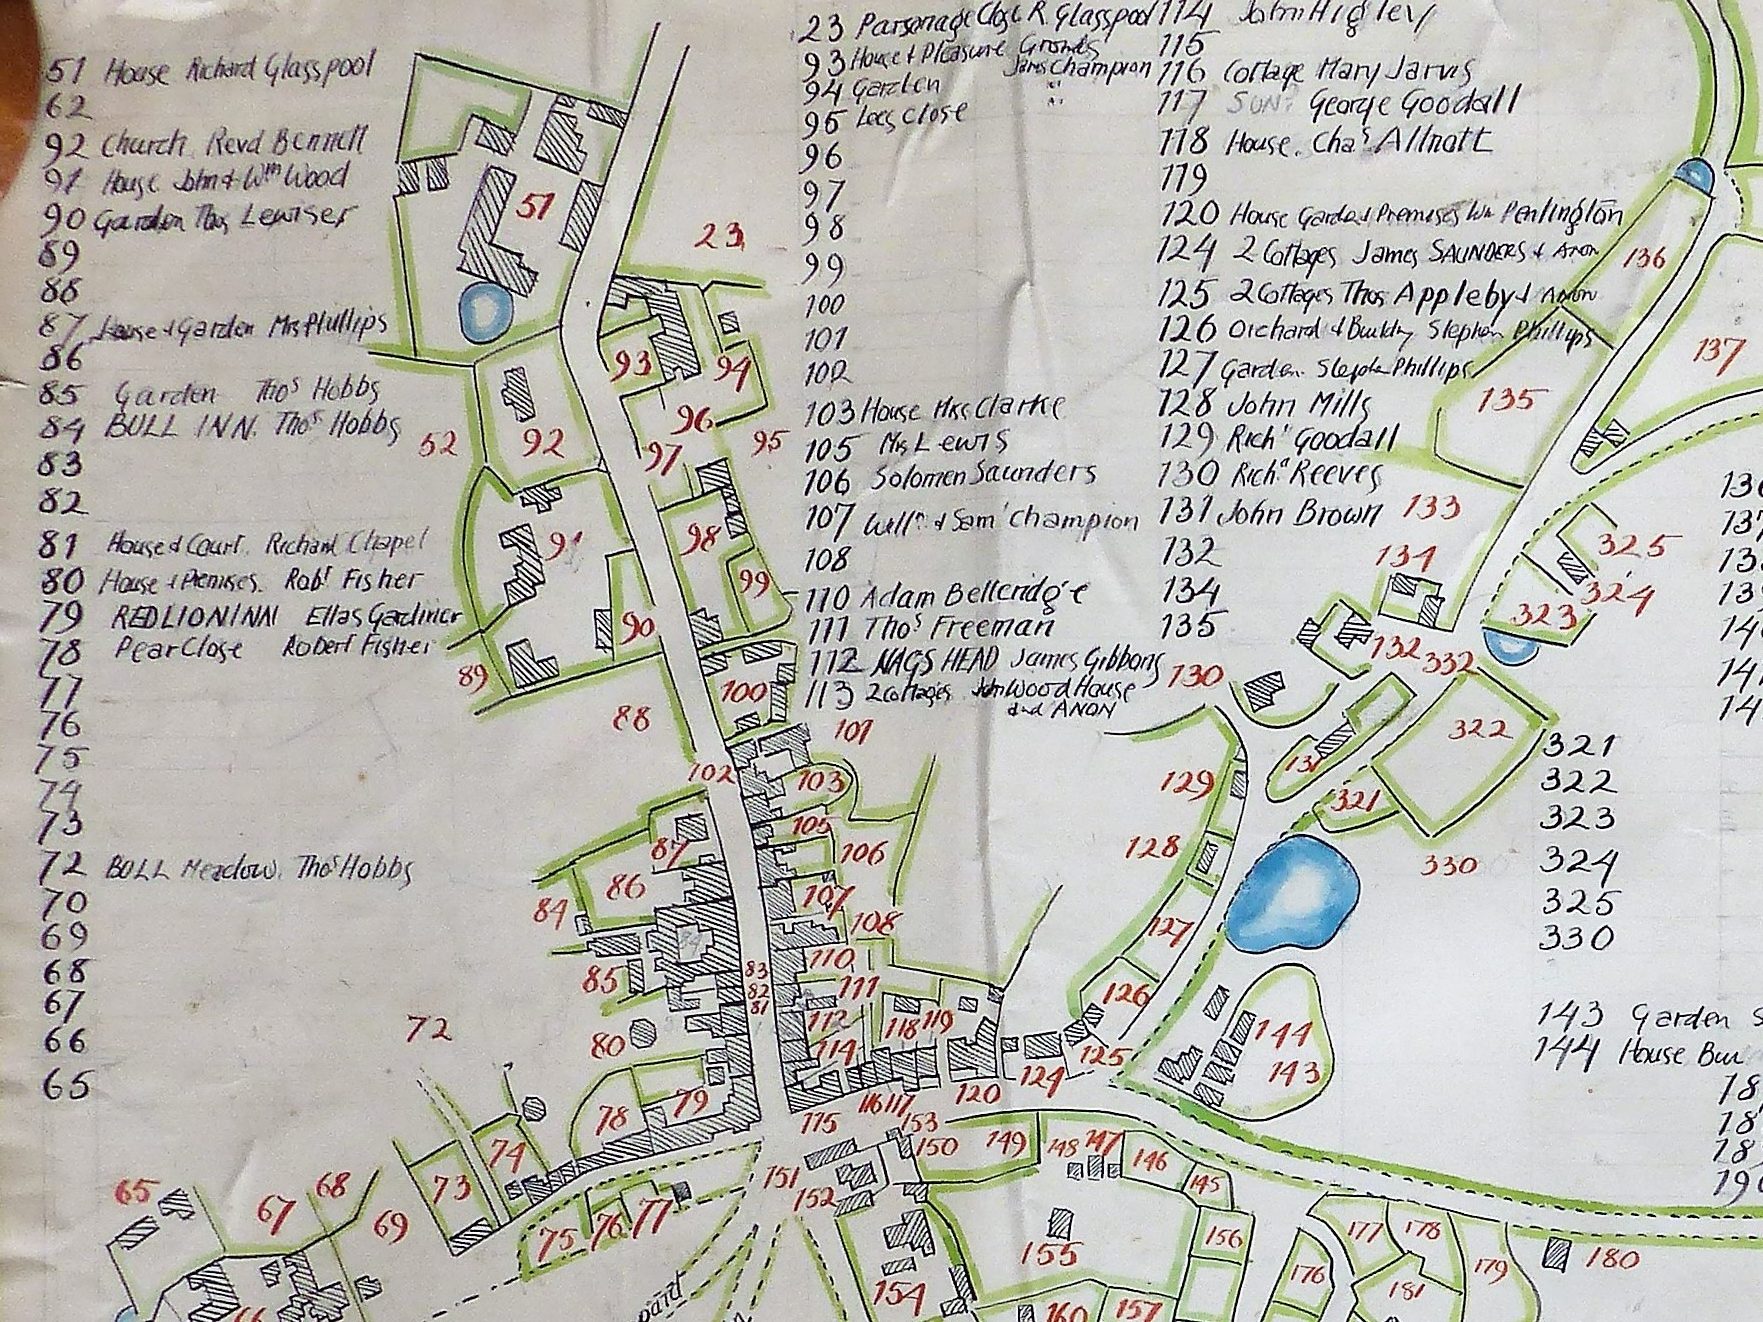 51 House Richard Glasspool
62
92 Church Revd Bennett
91 House John & Wm Wood
90 Garden Thos
89
88
87 House & Garden Mrs Phillips
86
85 Garden Thos Hobbs
84 BULL INN. Thos Hobbs
83
82
81 House & Court. Richard Chapel
80 House & Premises. Robt Fisher
79 RED LION INN Elias Gardiner
78 Pear Close Robert Fisher
77
76
75
74
73
72 BULL Meadow. Thos Hobbs
70
69
68
67
66
65
23 Parsonage Close R Glasspool
93 House & Pleasure Grounds
James Champion
94 Garden "
95 Lees Close "
96
97
98
99
100
101
102
103 House Mrs Clarke
105 Mrs Lewis
106 Solomen Saunders
107 Willm & Saml Champion
108
110 Adam Belleridge
111 Thos Freeman
112 NAGS HEAD James Gibbons
113 2 Cottages John Wood House
and ANON
114 John Higley
115
116 Cottage Mary Jarvis
117 SUN? George Goodall
118 House. Chas Allnatt
119
120 House Garden & Premises Wm Penlington
124 2 Cottages James SAUNDERS & Anon
125 2 Cottages Thos Appleby & Anon
126 Orchard & Building Stephen Phillips
127 Garden Stephen Phillips
128 John Mills
129 Richd Goodall
130 Richd Reeves
131 John Brown
132
134
135
321
322
323
324
325
330
143 Garden S
144 House
136
137
18
18
18
190
51
23
93
94
96
52
92
97
95
98
91
99
90
89
100
88
101
102
103
105
87
106
86
107
84
108
110
83
82
81
85
111
112
72
80
118
119
114
79
78
116
117
120
124
125
126
127
128
129
130
131
132
332
133
134
135
136
137
325
324
323
322
321
330
144
143
115
153
150
149
148
147
146
145
151
152
74
73
65
67
68
69
75
76
77
155
156
154
160
157
176
177
178
179
181
180
66